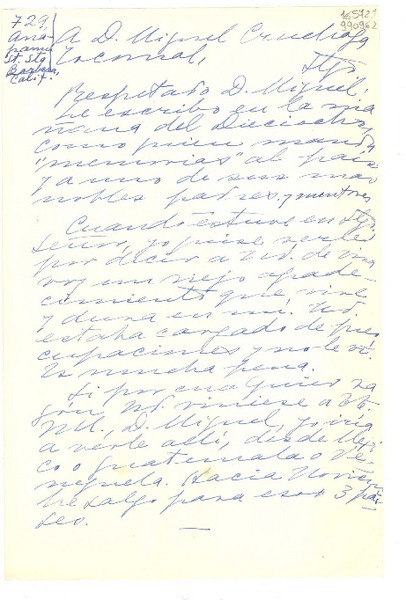 729
Ana-
pamu
St. Sta
Barbara,
Calif.
165121
990962
A D. Miguel Cruchaga
Tocornal,
Stgo.
Respetado D. Miguel,
le escribo en la ma
ñana del Dieciocho,
como quien manda
"memorias" al país
y a uno de sus mas
nobles padres y mentores
Cuando estuve en Stgo,
señor, yo quise verle
por decir a Ud. de viva
voz un viejo agrade-
cimiento que vive
y dura en mí. Ud.
estaba cargado de preo
cupaciones y no le vi.
Es mucha pena.
Si por cualquier ra
zón Ud. viniese a EE.
UU., D. Miguel, yo iría
a verle allí, desde Méxi
co o Guatemala o Ve-
nezuela. Hacia Noviem
bre salgo para esos 3 paí-
ses.